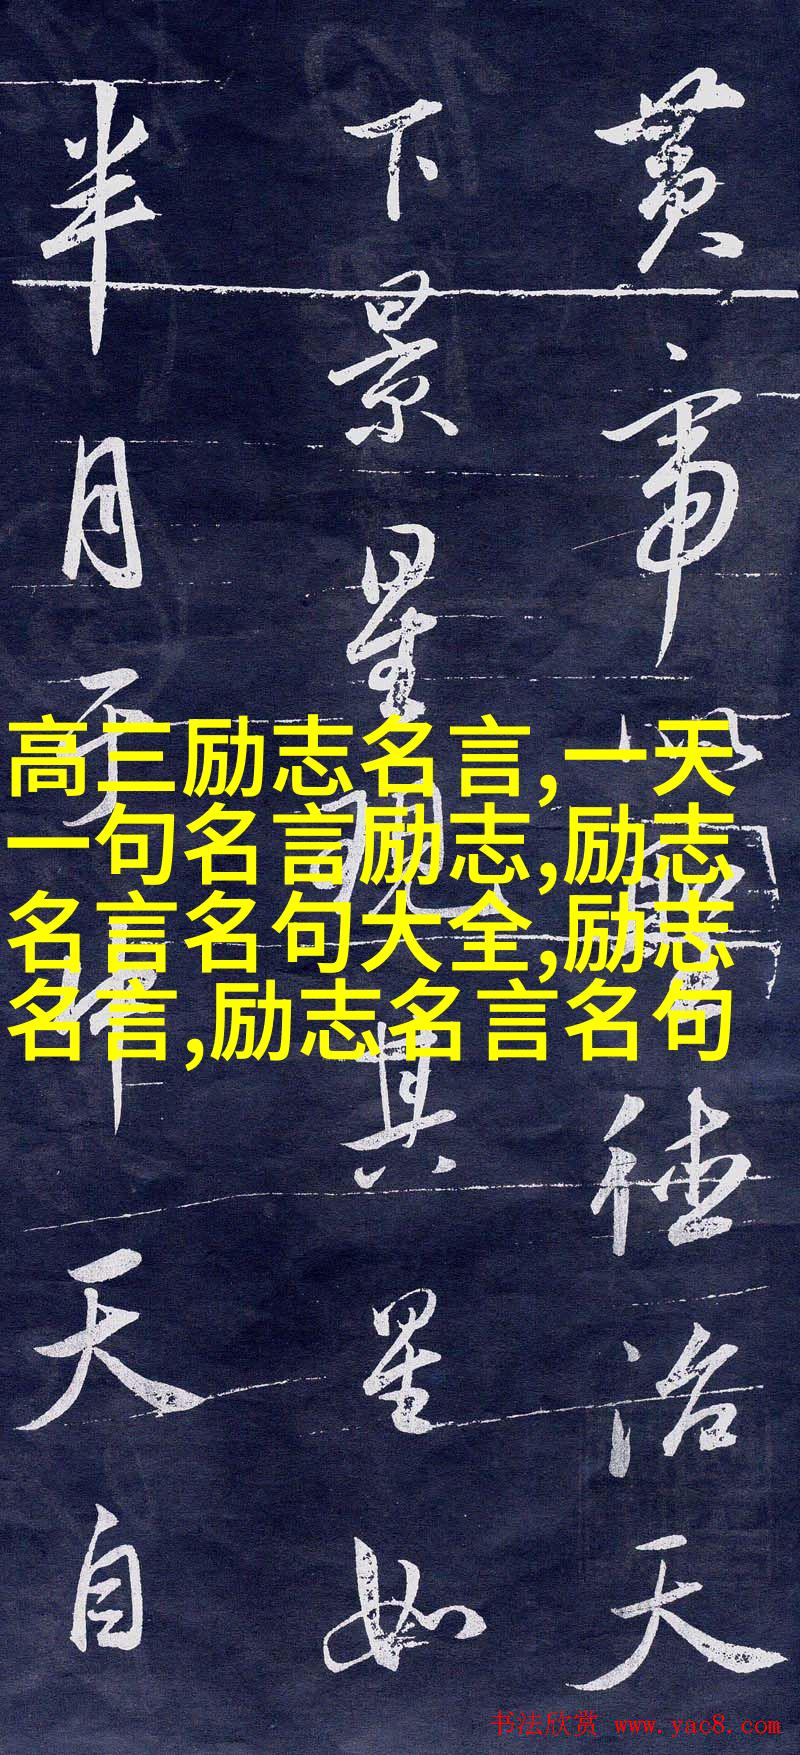 黄帝以聖德治天
下景星現其星如
半月于天自
高三励志名言,一天
一句名言励志,励志
名言名句大全,励志
名言,励志名言名句
书法欣赏 www.yac8.com